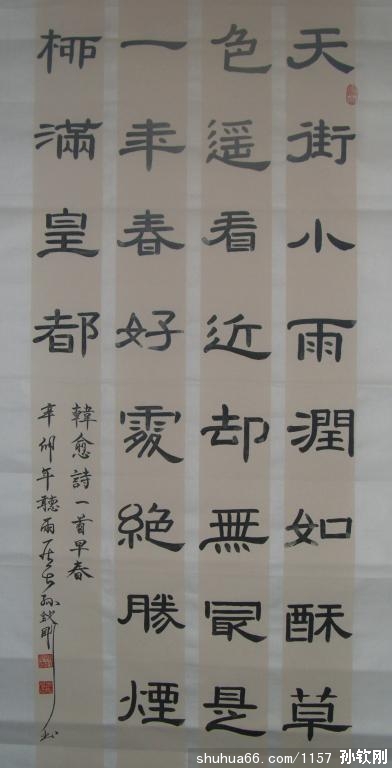 天街小雨潤如酥草
色遥看近却無最是
一年春好處絶勝煙
柳滿皇都
韓愈詩一首早春
辛卯年聽雨居士孫欽剛书
shuhua66.com/1157 孙钦刚